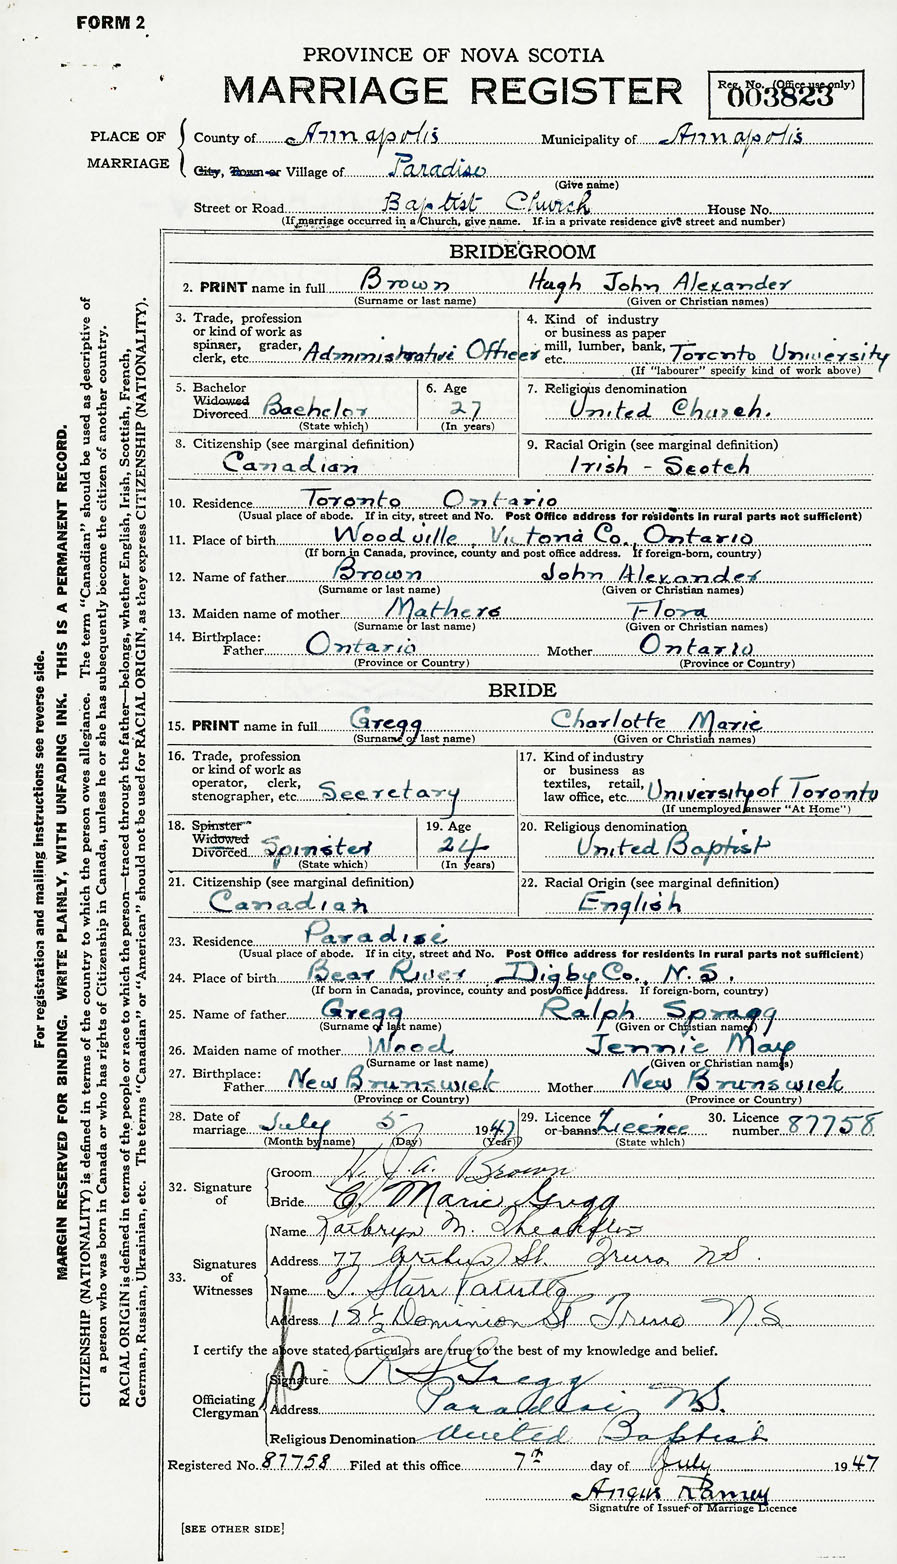 FORM 2
PROVINCE OF NOVA SCOTIA
MARRIAGE REGISTER
Reg. No. (Office use only)
003823
PLACE OF MARRIAGE
County of Annapolis Municipality of Annapolis
City, Town or Village of Paradise
(Give name)
Street or Road Baptist Church House No.
(If marriage occurred in a Church, give name. If in a private residence give street and number)
BRIDEGROOM
2. PRINT name in full Brown Hugh John Alexander
(Surname or last name) (Given or Christian names)
3. Trade, profession or kind of work as spinner, grader, clerk, etc. Administrative Officer
4. Kind of industry or business as paper mill, lumber, bank, etc. Toronto University
(If "labourer" specify kind of work above)
5. Bachelor Widowed Divorced Bachelor
(State which)
6. Age 27
(In years)
7. Religious denomination
United Church.
8. Citizenship (see marginal definition)
Canadian
9. Racial Origin (see marginal definition)
Irish - Scotch
10. Residence Toronto Ontario
(Usual place of abode. If in city, street and No. Post Office address for residents in rural parts not sufficient)
11. Place of birth Woodville, Victoria Co., Ontario
(If born in Canada, province, county and post office address. If foreign-born, country)
12. Name of father Brown John Alexander
(Surname or last name) (Given or Christian names)
13. Maiden name of mother Mathers Flora
(Surname or last name) (Given or Christian names)
14. Birthplace:
Father Ontario Mother Ontario
(Province or Country) (Province or Country)
BRIDE
15. PRINT name in full Gregg Charlotte Marie
(Surname or last name) (Given or Christian names)
16. Trade, profession or kind of work as operator, clerk, stenographer, etc. Secretary
17. Kind of industry or business as textiles, retail, law office, etc. University of Toronto
(If unemployed answer "At Home")
18. Spinster Widowed Divorced Spinster
(State which)
19. Age 24
(In years)
20. Religious denomination
United Baptist
21. Citizenship (see marginal definition)
Canadian
22. Racial Origin (see marginal definition)
English
23. Residence Paradise
(Usual place of abode. If in city, street and No. Post Office address for residents in rural parts not sufficient)
24. Place of birth Bear River Digby Co., N.S.
(If born in Canada, province, county and post office address. If foreign-born, country)
25. Name of father Gregg Ralph Spragg
(Surname or last name) (Given or Christian names)
26. Maiden name of mother Wood Jennie May
(Surname or last name) (Given or Christian names)
27. Birthplace:
Father New Brunswick Mother New Brunswick
(Province or Country) (Province or Country)
28. Date of marriage July 5 1947
(Month by name) (Day) (Year)
29. Licence or banns Licence
(State which)
30. Licence number 87758
32. Signature of
Groom H. J. A. Brown
Bride C. Marie Gregg
33. Signatures of Witnesses
Name Kathryn M.
Address 77 Arthur St. Truro N.S.
Name T. Starr
Address 18½ Dominion St Truro N S
I certify the above stated particulars are true to the best of my knowledge and belief.
Officiating Clergyman
Signature R S Gregg
Address Paradise N.S.
Religious Denomination United Baptist
Registered No. 87758 Filed at this office 7th day of July 1947
Angus Ramey
Signature of Issuer of Marriage Licence
[SEE OTHER SIDE]
For registration and mailing instructions see reverse side.
MARGIN RESERVED FOR BINDING. WRITE PLAINLY, WITH UNFADING INK. THIS IS A PERMANENT RECORD.
CITIZENSHIP (NATIONALITY) is defined in terms of the country to which the person owes allegiance. The term "Canadian" should be used as descriptive of
a person who was born in Canada or who has rights of Citizenship in Canada, unless he or she has subsequently become the citizen of another country.
RACIAL ORIGIN is defined in terms of the people or race to which the person—traced through the father—belongs, whether English, Irish, Scottish, French,
German, Russian, Ukrainian, etc. The terms "Canadian" or "American" should not be used for RACIAL ORIGIN, as they express CITIZENSHIP (NATIONALITY).